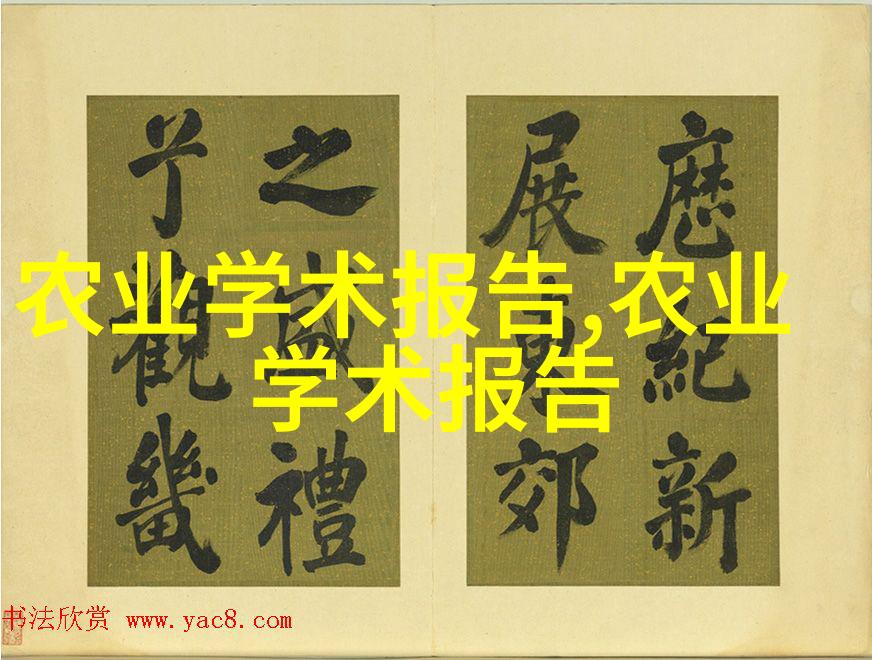 歴紀新
展東郊
之盛禮
觀畿
农业学术报告,农业
学术报告
书法欣赏 www.yac8.com